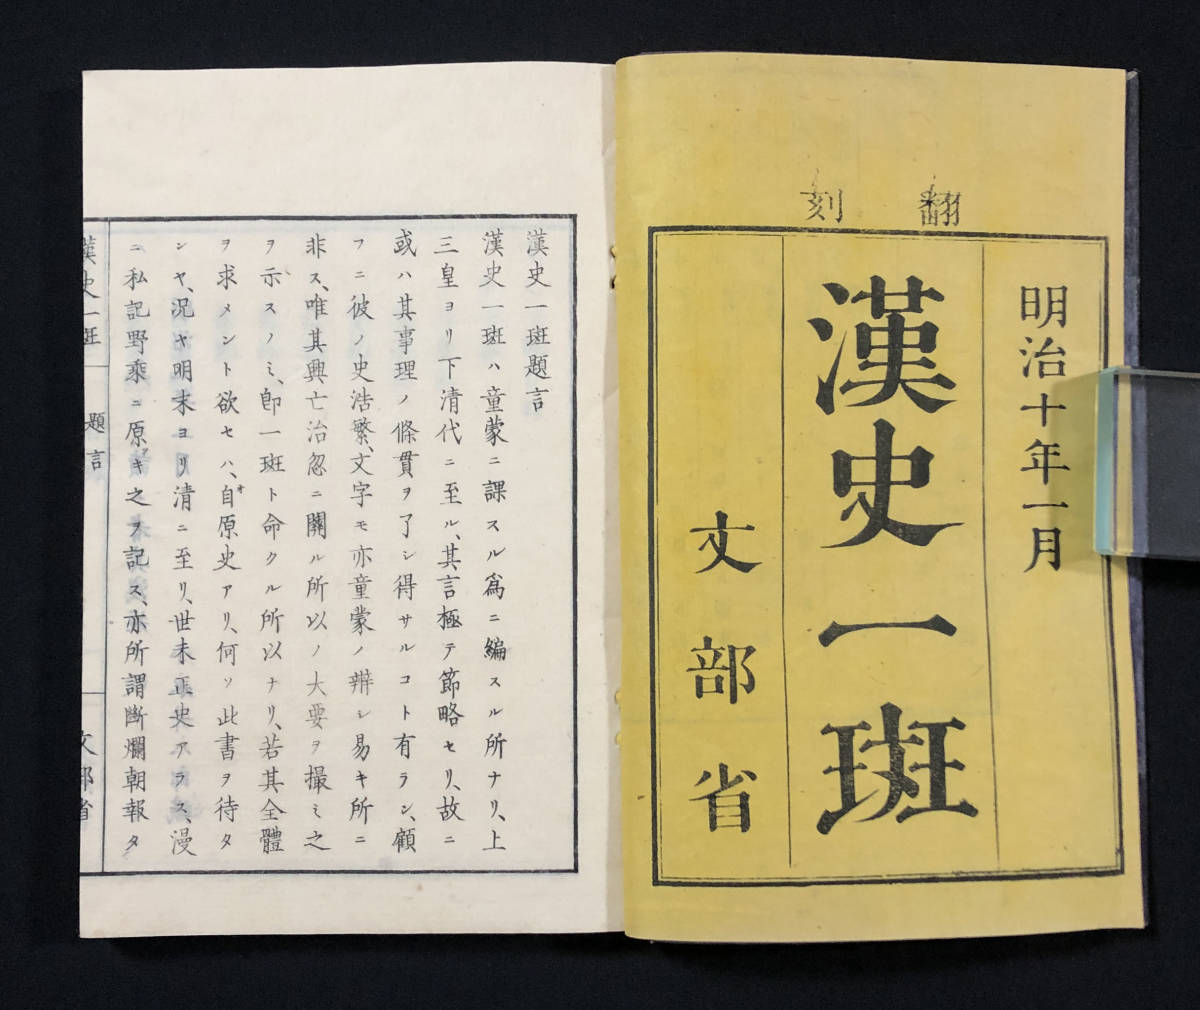 翻刻
明治十年一月
漢史一斑
文部省
漢史一斑題言
漢史一斑ハ童蒙ニ課スル爲ニ編スル所ナリ、上
三皇ヨリ下清代ニ至ル、其言極テ節略セリ、故ニ
或ハ其事理ノ條貫ヲ了シ得サルコト有ラン、顧
フニ彼ノ史浩繁、文字モ亦童蒙ノ辨シ易キ所ニ
非ス、唯其興亡治忽ニ關ル所以ノ大要ヲ撮ミ之
ヲ示スノミ、卽一斑ト命クル所以ナリ、若其全體
ヲ求メント欲セハ、自原史アリ、何ソ此書ヲ待タ
ンヤ、況ヤ明末ヨリ清ニ至リ、世未正史アラス、漫
ニ私記野乘ニ原キ之ヲ記ス、亦所謂斷爛朝報タ
漢史一斑
題言
文部省